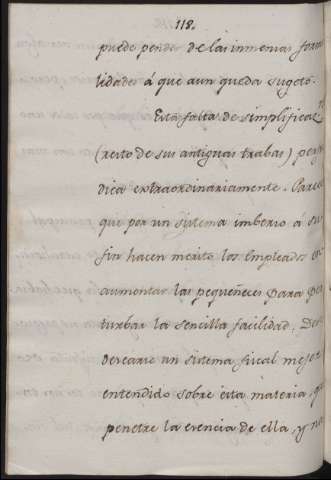 118.
puede pende de las inmensas form
lidades á que aun queda sugeto.
Esta falta de simplificaz
(resto de sus antiguas trabas) perju
dica extraordinariamente. Parece
que por un sistema imbersо á su
fin hacen merito los Empleados en
aumentar las pequeñeces para per
turbar la sencilla facilidad. Des
dexearse un sistema fiscal mejor
entendido sobre esta materia, q
penetre la esencia de ella, y no